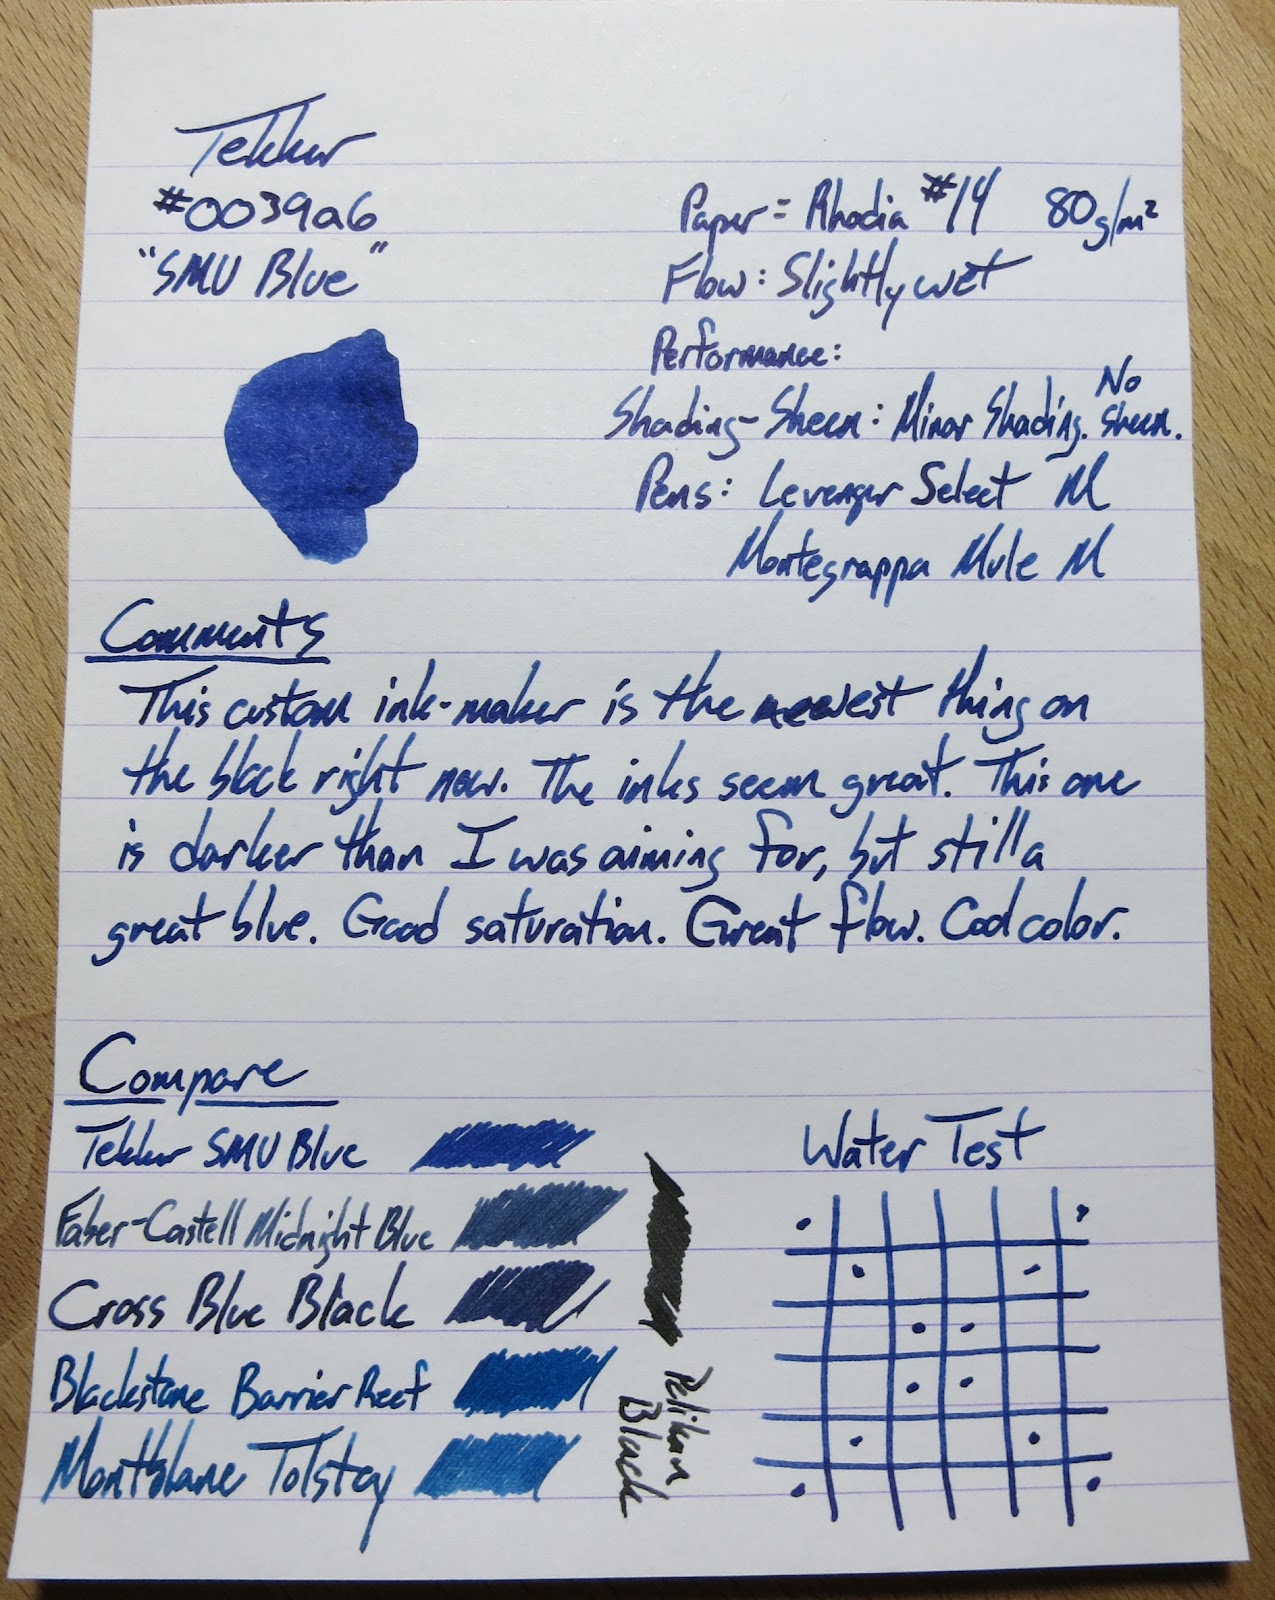 Tekker
#0039a6
"SMU Blue"
Paper = Rhodia #14 80g/m²
Flow: Slightly wet
Performance:
Shading-Sheen: Minor Shading. No Sheen.
Pens: Levenger Select M
Montegrappa Mule M
Comments
This custom ink-maker is the newest thing on
the block right now. The inks seem great. This one
is darker than I was aiming for, but still a
great blue. Good saturation. Great flow. Cool color.
Compare
Tekker SMU Blue
Faber-Castell Midnight Blue
Cross Blue Black
Blackstone Barrier Reef
Montblanc Tolstoy
Pelikan
Black
Water Test